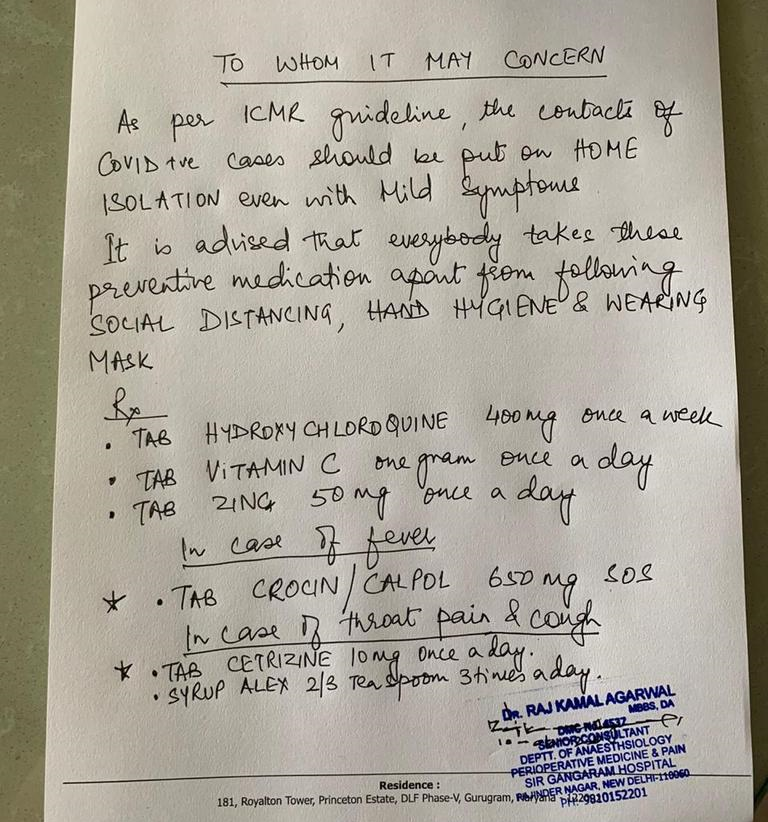 TO WHOM IT MAY CONCERN
As per ICMR guideline, the contacts of
COVID +ve cases should be put on HOME
ISOLATION even with Mild Symptoms
It is advised that everybody takes these
preventive medication apart from following
SOCIAL DISTANCING, HAND HYGIENE & WEARING
MASK
Rx
• TAB HYDROXYCHLOROQUINE 400mg once a week
• TAB VITAMIN C one gram once a day
• TAB ZINC 50 mg once a day
In case of fever
* • TAB CROCIN/CALPOL 650 mg SOS
In case of throat pain & cough
* • TAB CETRIZINE 10mg once a day.
• SYRUP ALEX 2/3 Teaspoom 3 times a day.
Dr. RAJ KAMAL AGARWAL
MBBS, DA
DMC No. 4537
SENIOR CONSULTANT
DEPTT. OF ANAESTHSIOLOGY
PERIOPERATIVE MEDICINE & PAIN
SIR GANGARAM HOSPITAL
RAJINDER NAGAR, NEW DELHI-110060
PH: 9810152201
Residence :
181, Royalton Tower, Princeton Estate, DLF Phase-V, Gurugram, Haryana